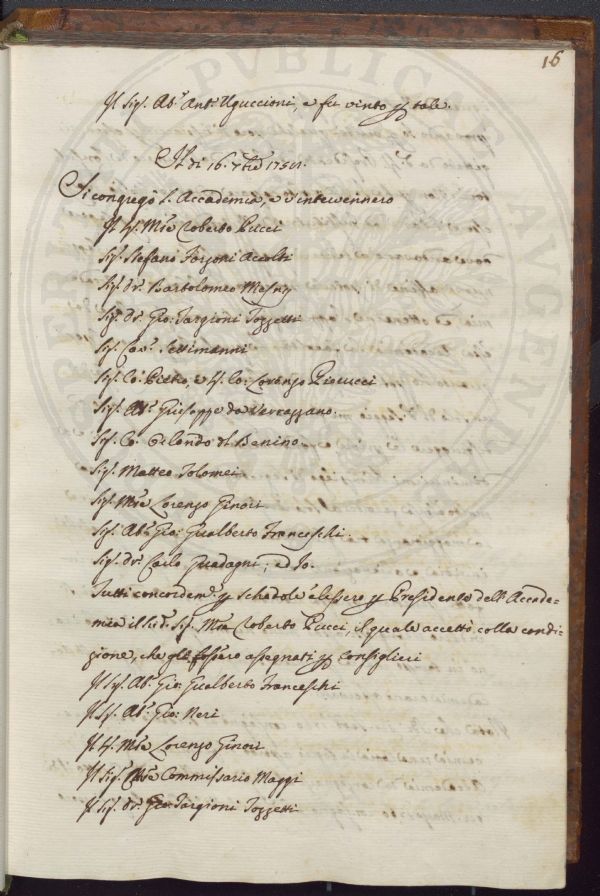 16
Il Sig.r Ab.e Ant.o Uguccioni, e fu vinto p tale.
Il dì 16. 7bre
Si congregò l'Accademia, e v'intervennero
Il Sig.r M.se Roberto Pucci
Sig.r Stefano Forzoni Accolti
Sig.r Dr. Bartolomeo Mesny
Sig.r Dr. Gio: Targioni Tozzetti
Sig.r Cav.r Settimanni
Sig.r Co: Pietro, e Sig.r Co: Lorenzo
Sig.r Ab.e Giuseppe da Verrazzano
Sig.r Co: Orlando del Benino
Sig.r Matteo Tolomei
Sig.r M.se Lorenzo Ginori
Sig.r Ab.e Gio: Gualberto Franceschi
Sig.r Dr. Carlo Guadagni; ed Io.
Tutti concordem.e p schedole elessero p Presidente dell'Accade=
mia il sud.o Sig.r M.se Roberto Pucci, il quale accettò colla condi=
zione, che gli fossero assegnati p Consiglieri
Il Sig.r Ab.e Gio: Gualberto Franceschi
Il Sig.r Ab.e Gio: Neri
Il Sig.r M.se Lorenzo Ginori
Il Sig.r Commissario Maggi
Il Sig.r Dr. Gio: Targioni Tozzetti
PVBLICAE